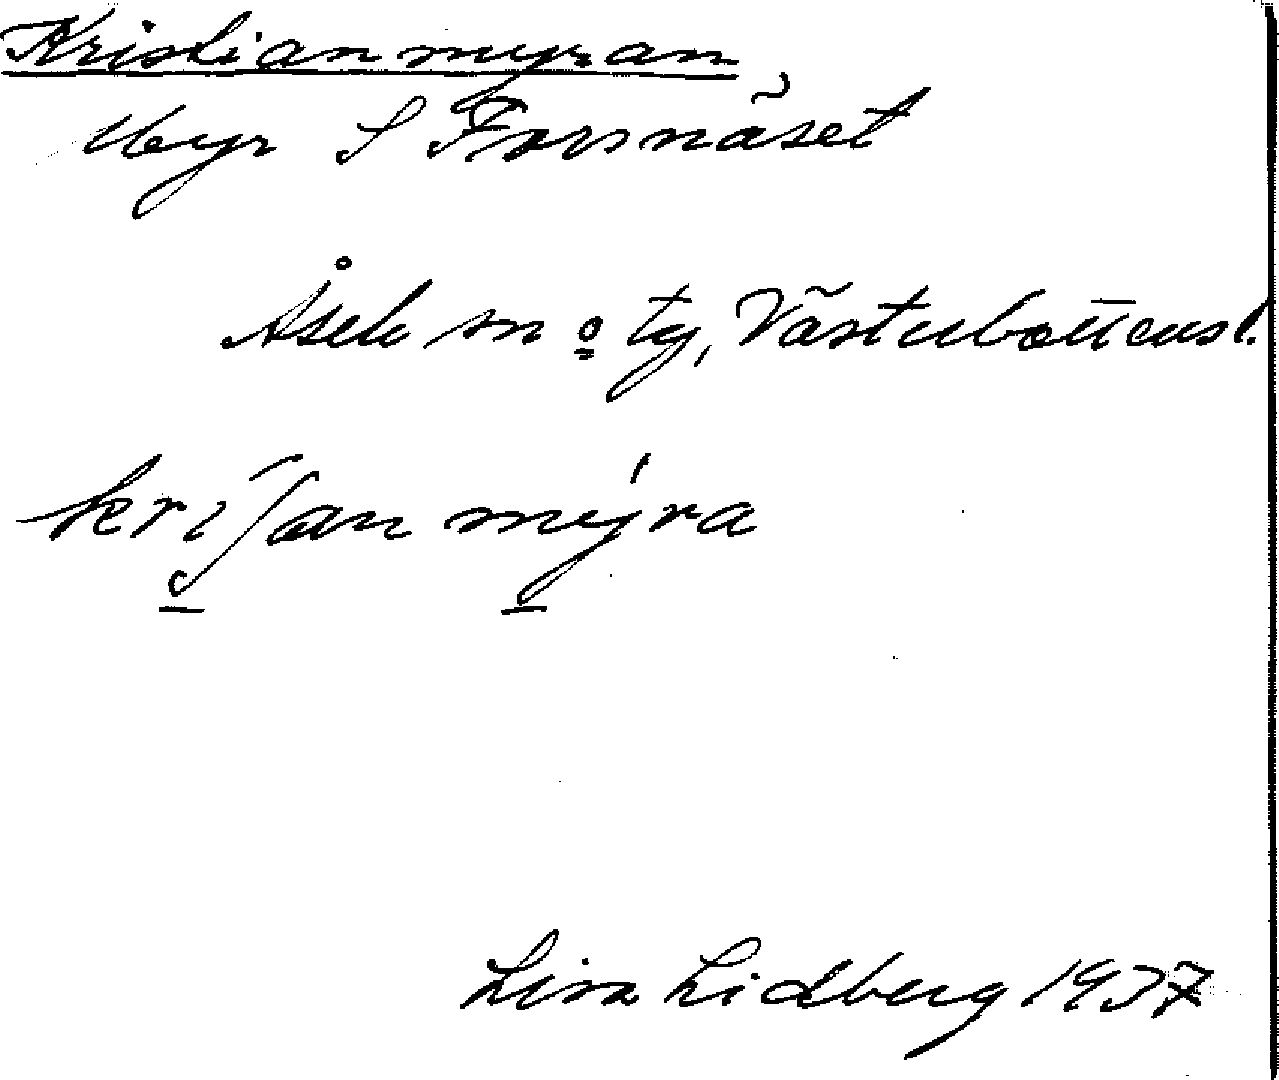 Kristianmyran
Myr S Forsnäset
Åsele sn o tg, Västerbottensl.
kriʃan myra
Lisa Lidberg 1937